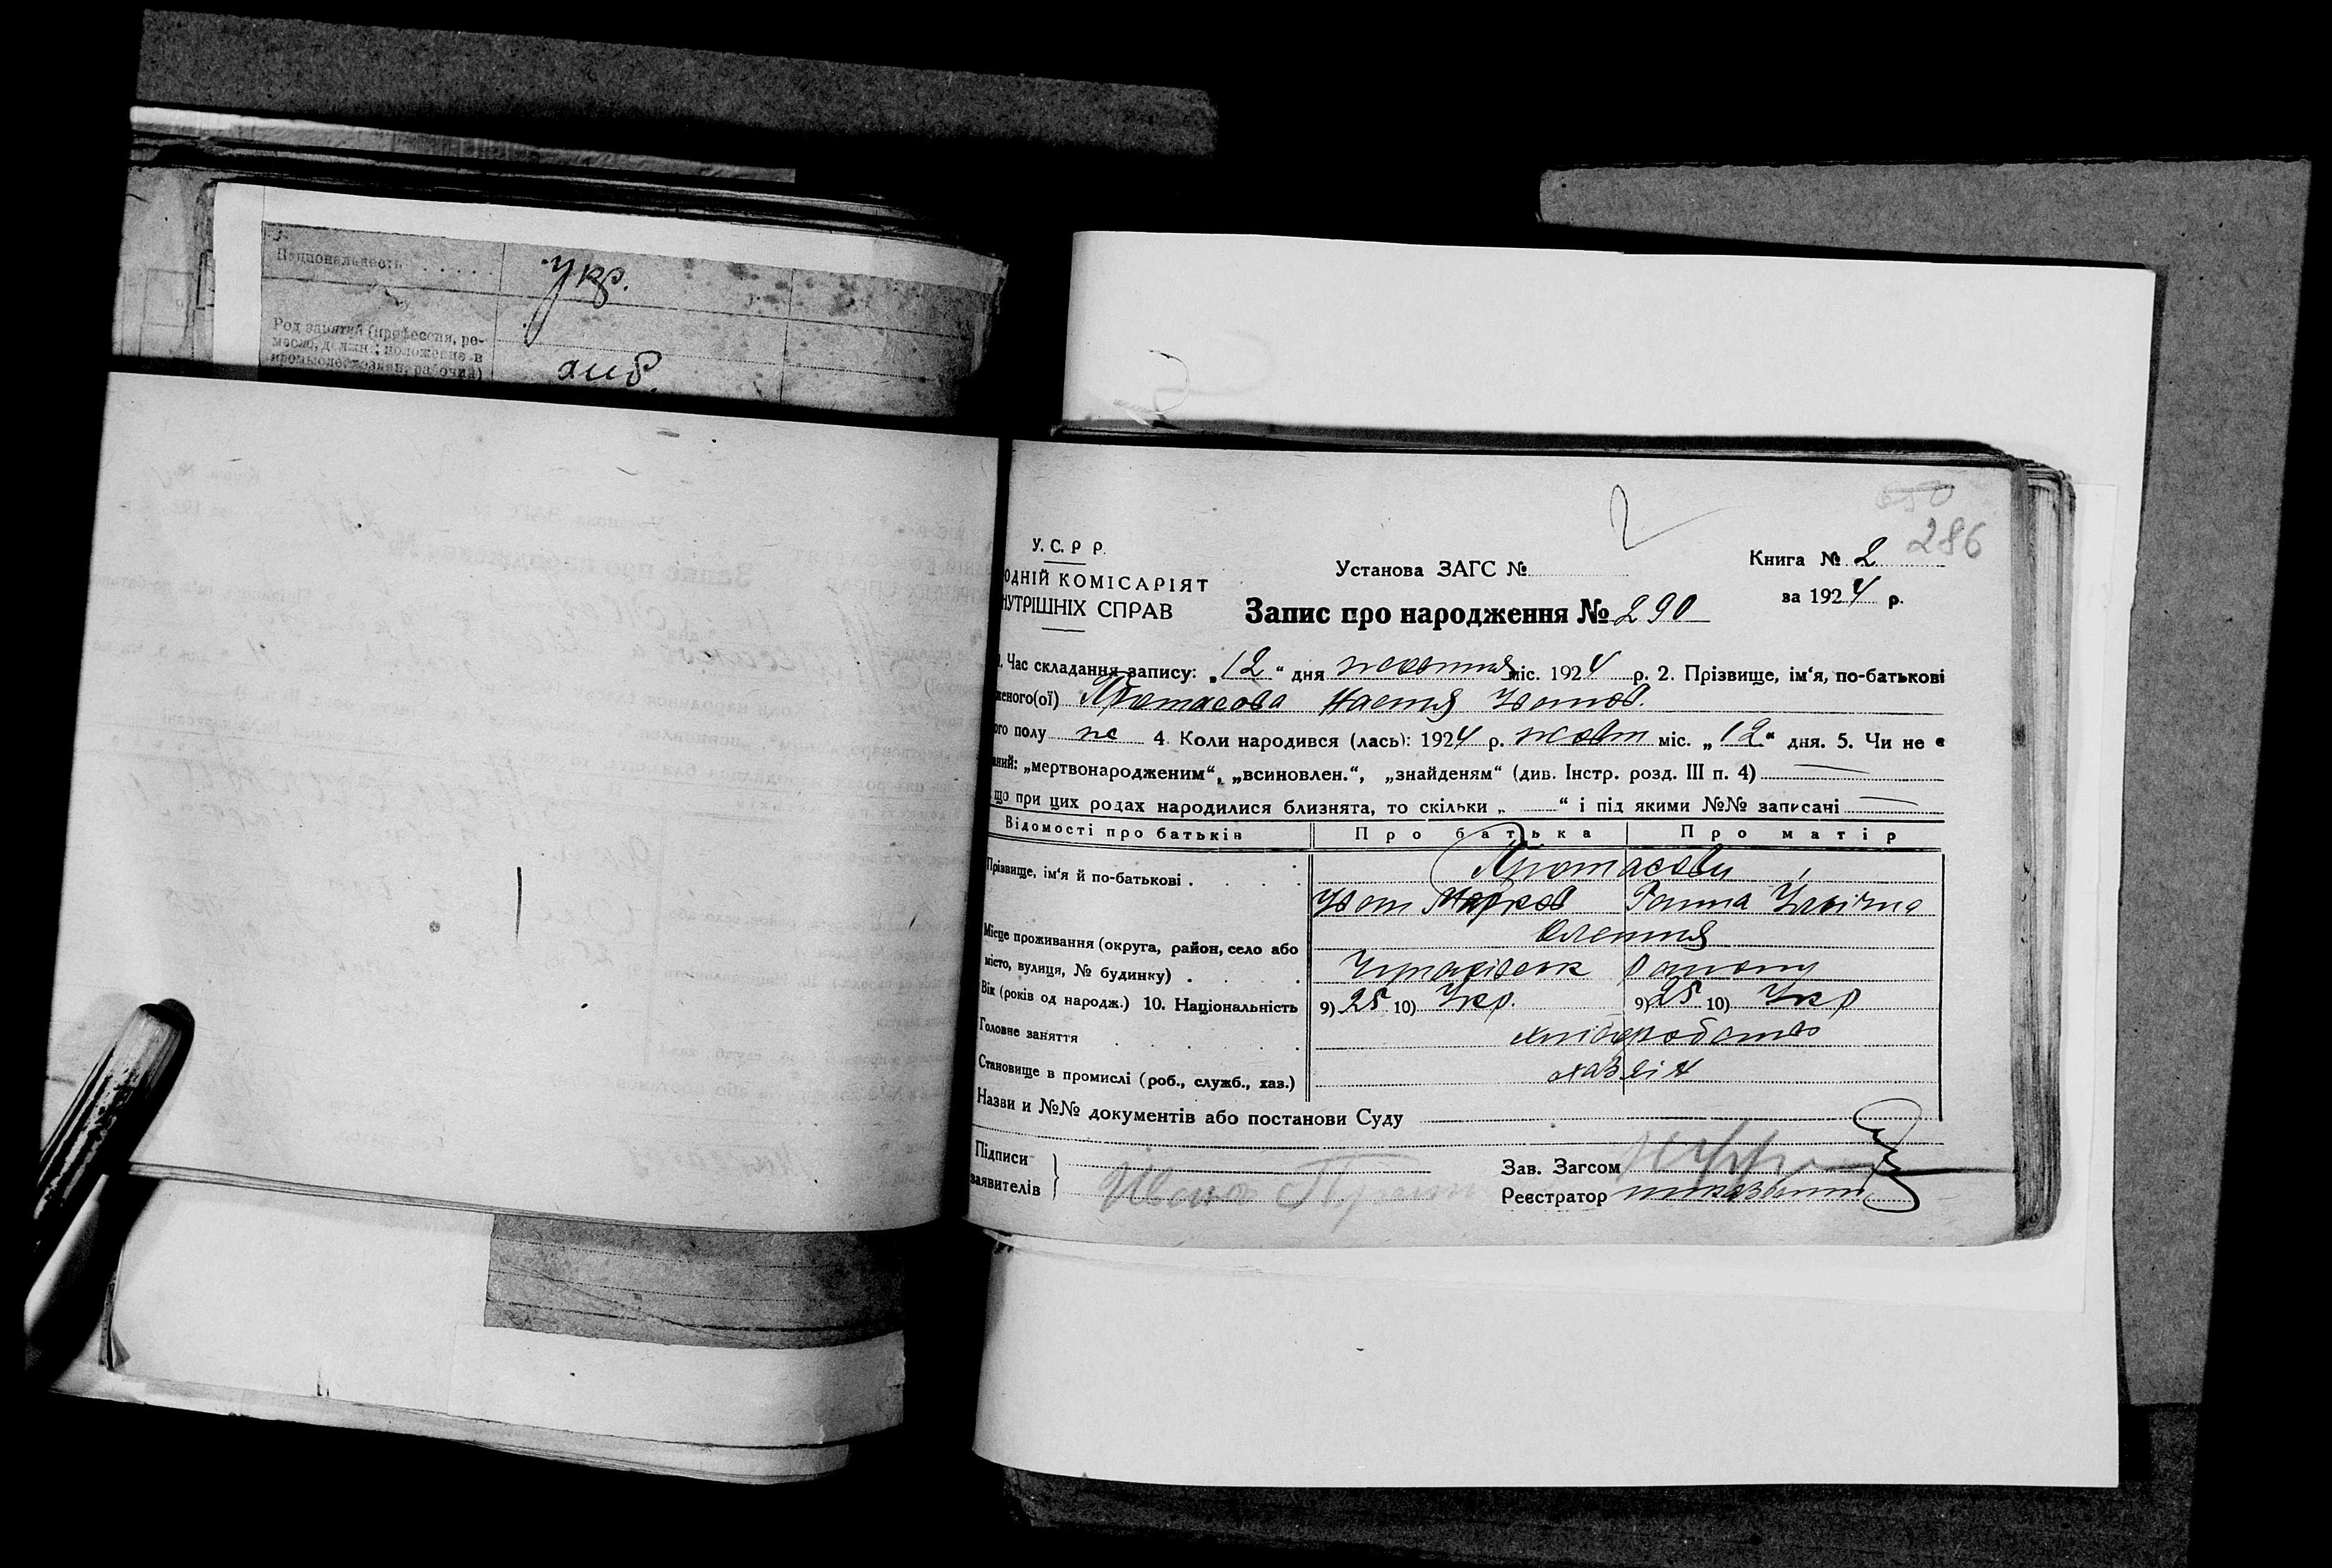 Национальность
укр.
Род занятий (профессия, ре-
месло, должн.; положение в
промысле, хозяин, рабочий)
хліб.
286
У. С. Р. Р.
Установа ЗАГС №
Книга № 2
ОДНІЙ КОМІСАРІЯТ
НУТРІШНІХ СПРАВ
Запис про народження № 290
за 1924 р.
1. Час складання запису: „12“ дня жовтня міс. 1924 р. 2. Прізвище, ім‘я, по-батькові
женого(ої) Протасова Настя Іванов.
ого полу жс 4. Коли народився (лась): 1924 р. жовт міс. „12“ дня. 5. Чи не є
аний: „мертвонародженим“, „всиновлен.“, „знайденям“ (див. Інстр. розд. III п. 4)
що при цих родах народилися близнята, то скільки „ “ і під якими №№ записачі
Відомості про батьків Про батька Про матір
Прізвище, ім‘я й по-батькові . Протасови
Іван Марков Ганна Ілвічна
Місце проживання (округа, район, село або
місто, вулиця, № будинку) . району
Вік (років од народж.) 10. Національність 9) 25 10) Укр. 9) 25 10) Укр
Головне заняття хліборобство
Становище в промислі (роб., служб., хаз.) хазяін
Назви и №№ документів або постанови Суду
Підписи
заявителів
Иван Прот
Зав. Загсом
Реєстратор